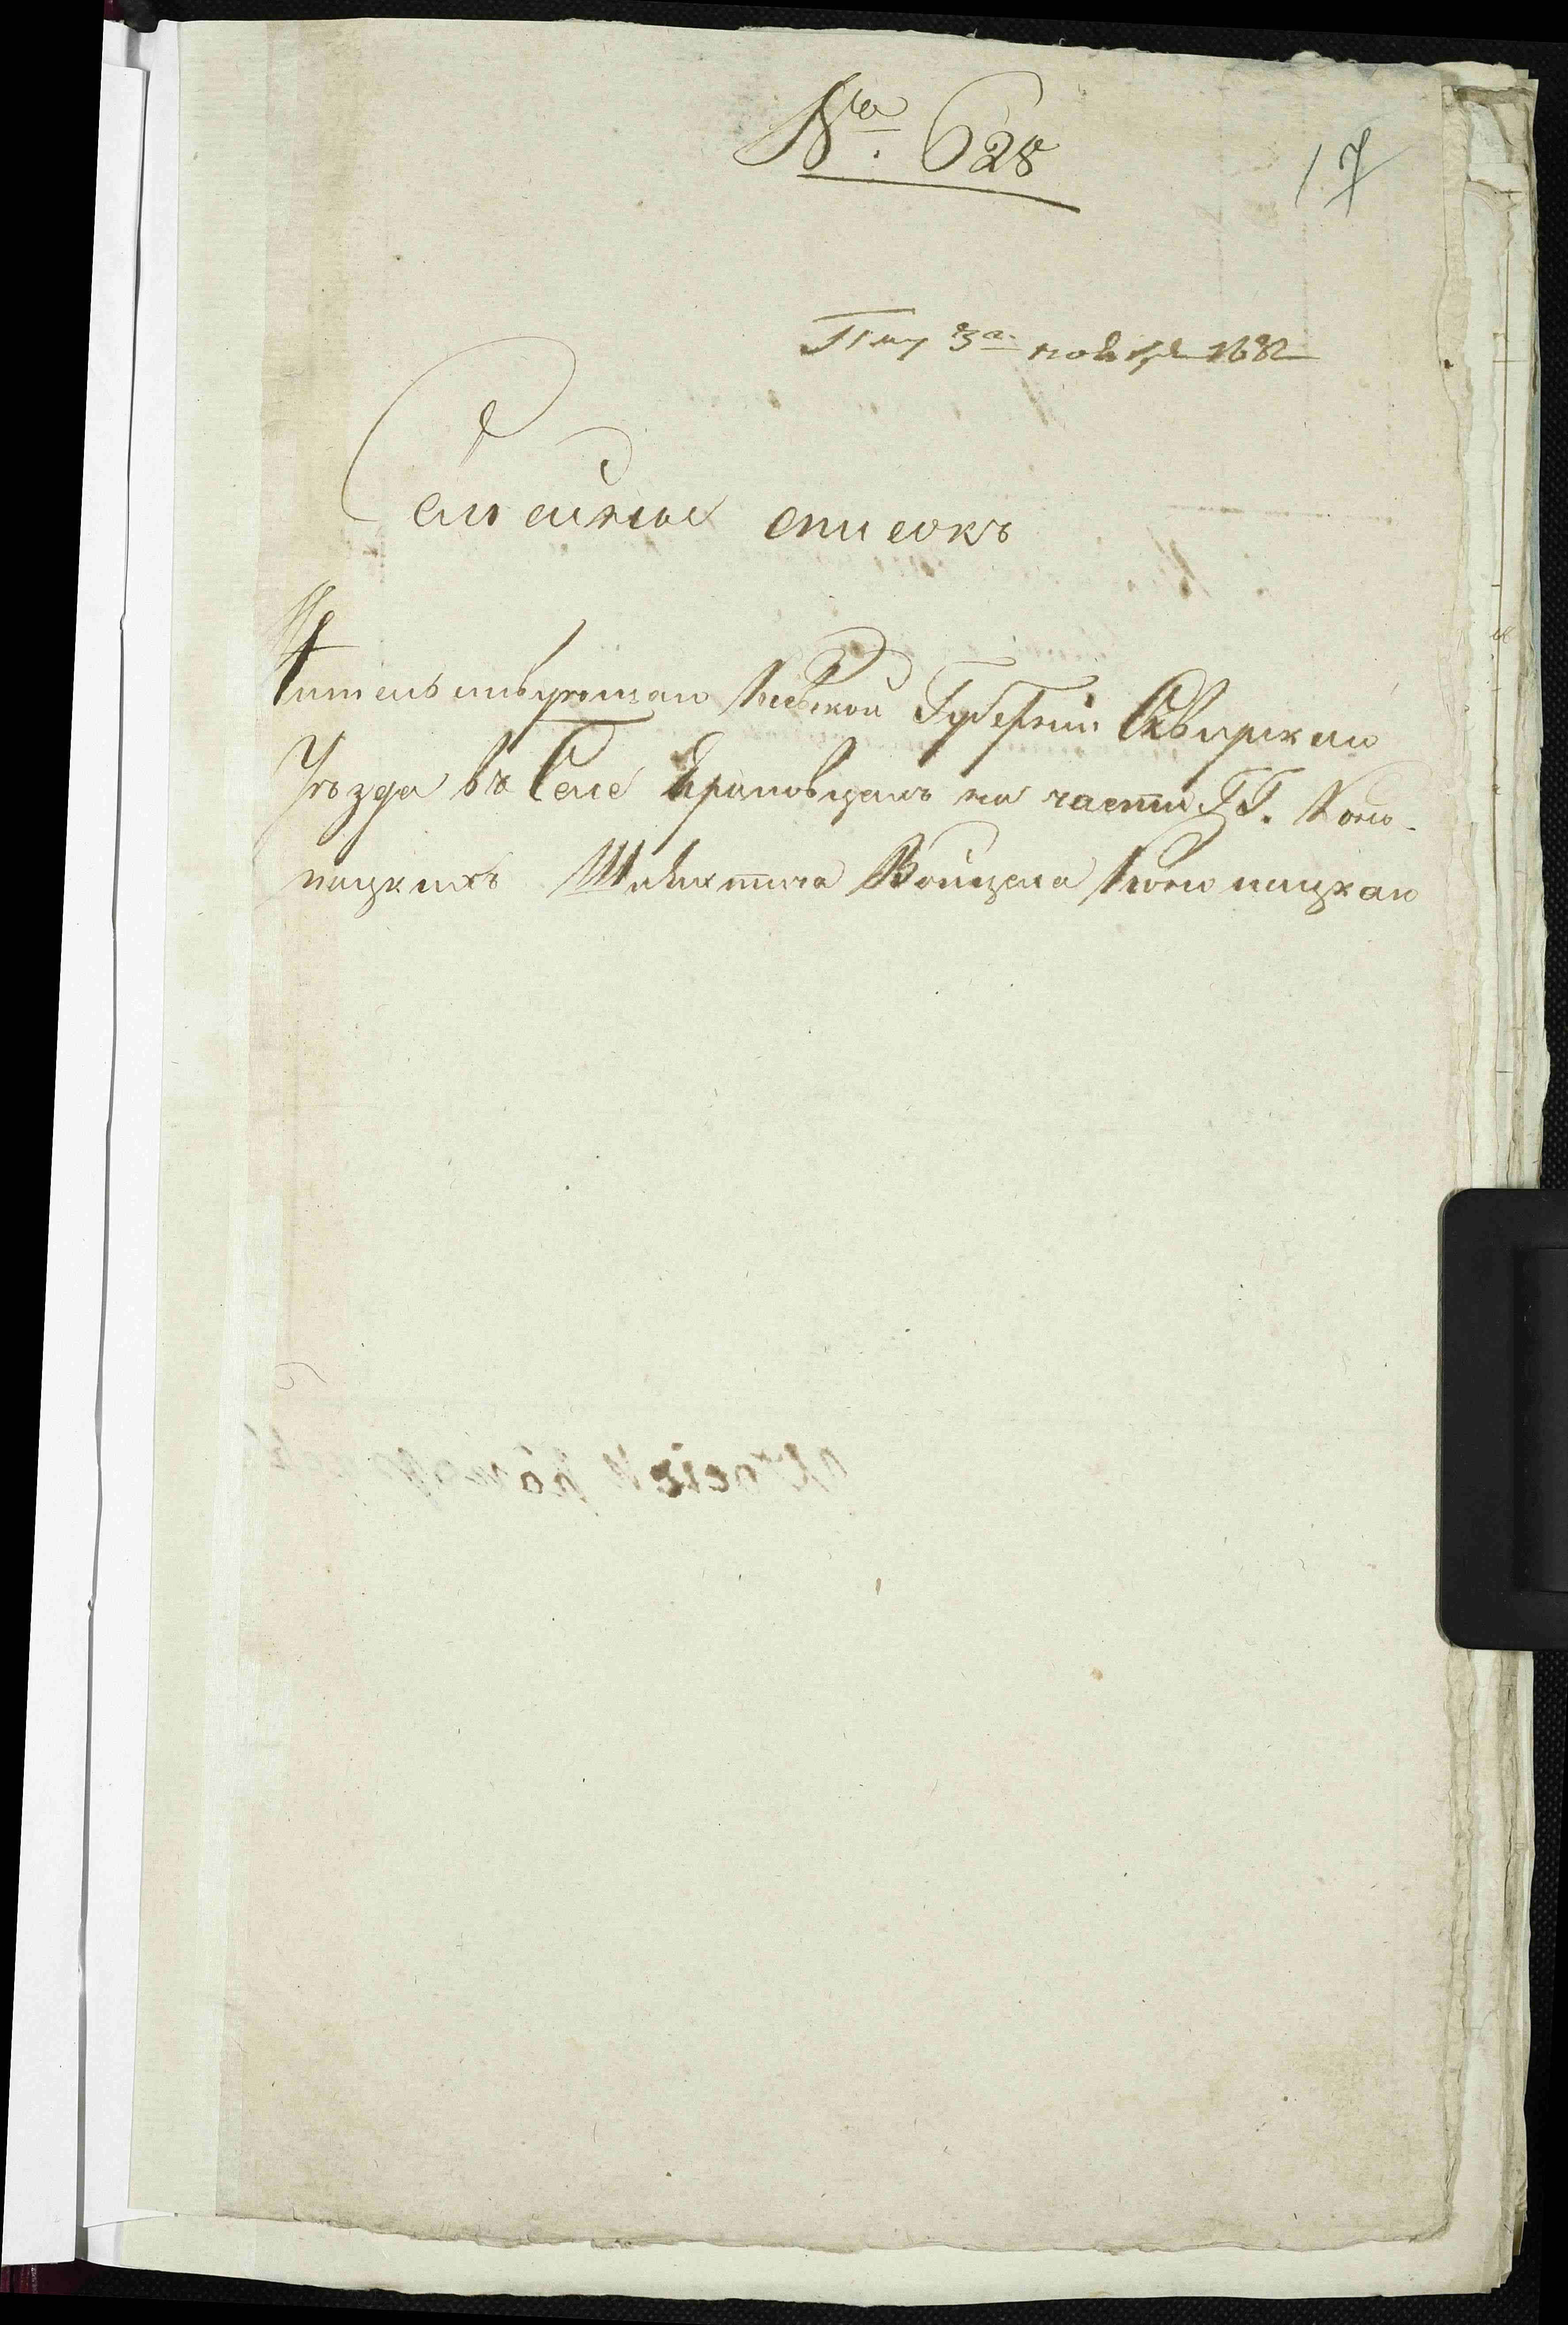 № 628
17
3го ноября 1832
Семейный списокъ
Жительствующаго Кіевской Губерніи Сквирскаго
Уѣзда въ Селѣ Ерчиковцахъ на части ГГ. Коно-
пацкихъ Шляхтича Войцеха Конопацкаго